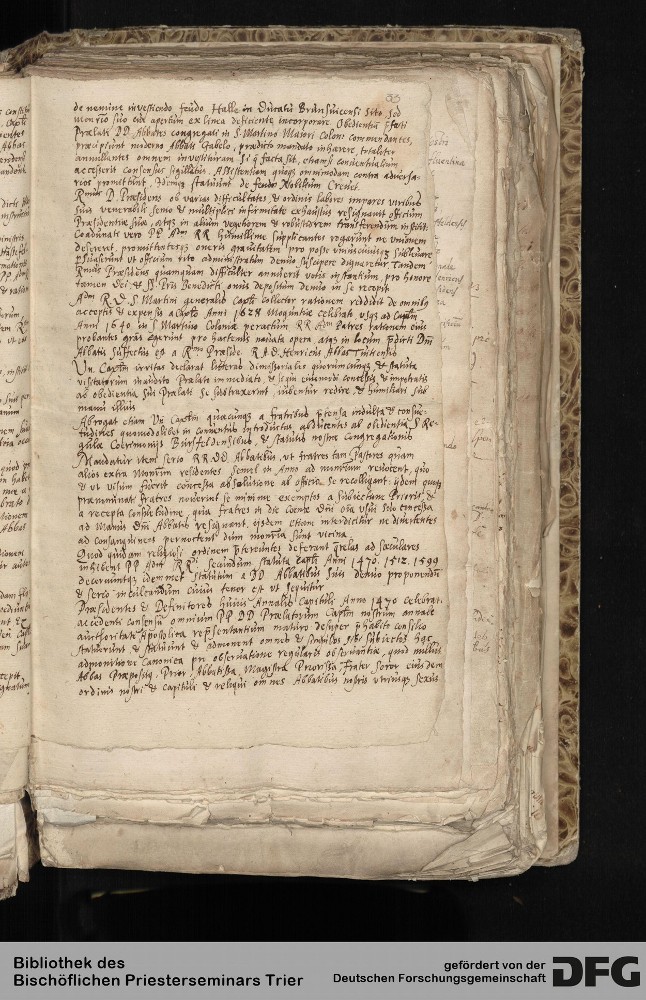 83
de nemine investiendo feudo Halle in Ducatu Brunsuicensi sito, sed
suo apertum ex linea deficiente incorporare. Obedientiæ
Prælati DD. Abbates congregati in S. Martino Maiori Coloniæ commendantes,
præcipiunt moderno Abbati Gabelo, prædicto mandato inhærere, totaliter
annullantes omnem investituram si q̃ facta sit, etiamsi conventualium
accesserit consensus sigillatus. Assistentiam omnimodam contra adversa-
rios promittunt. Idemq; statuunt de feudo Nobilium
R.mus D. Præsidens ob varias difficultates & ordinis labores impares viribus
suis venerabili senio & multiplici infirmitate exhaustus resignavit officium
Præsidentiæ suæ, atq; in alium vegetiorem & robustiorem transferendum institit.
Coadunati vero PP. Adm RR humillime supplicantes rogarunt ne unionem
desereret, promittentesq; oneris gravitatem pro posse sublevare
persuaserunt ut officium rito administratum denuo suscipere dignaretur. Tandem
R.mus Præsidens quamquam difficulter annuerit votis instantium, pro honore
tamen Dei & SS. Pris Benedicti onus depositum denuo in se recepit.
Adm R. D. S. Martini generalis Capli collector rationem reddidit de omnibq
acceptis & expensis a Caplo Anni 1628 Moguntiæ celebrato usq; ad Caplm
Anni 1640 in S. Martino Coloniæ peractum RR Adm Patres rationem eius
probantes grãs egerunt pro hactenus navata opera, atq; in locum p̃dicti Dñi
Abbatis suffectus est a R.mo Præside R. A. D. Henricus Abbas Tuitiensis
Vn. Caplm irritas declarat litteras dimissoriales quorumcunq; & statuta
visitatorum inaudito Prælato immediato, & siqui eiusmodi concessis & impetratis
ab obedientia sui Prælati se subtraxerint, iubentur redire, & humiliari sub
manu illius
Abrogat etiam Vn Caplm quæcunq; a fratribus p̃tensa indulta & consue-
tudines quomodolibet in conventus introductas, abducentes ab obedientia S. Re-
gulæ Cærimoniis Bursfeldensibus, & statutis nostræ Congregationis
Mandatur item serio RR. DD. Abbatibus, ut fratres tam pastores quam
alios extra Monrium residentes semel in Anno ad monrium revocent, quo
& ut visum fuerit concessa absolutione ab officio se recolligant. ijdem quoq
præmuniant fratres noverint se minime exemptos a subiectione Prioris, &
a recepta consuetudine, qua fratres in die Cænæ Dñi oña usui suo concessa
ad manus Dñi Abbatis resignant. ijsdem etiam interdicitur ne divertentes
ad consanguineos pernoctent dum monria sunt vicina.
Quod quidam religiosi ordinem p̃tereuntes deferant q̃relas ad sæculares
inhibent PP. Adm RR. secundum statuta Capli Anni 1470. 1512. 1599
decernuntq; idemmet statutum a DD. Abbatibus suis denuo proponendũ
& serio inculcandum cuius tenor est ut sequitur
Præsidentes & Definitores huius Annalis Capituli Anno 1470 celebrat.
accedenti consensu omnium PP. DD Prælatorum Caplm nostrum annale
aucthoritate Apostolica rep̃sentantium maturo desuper p̃habito consilio
statuerunt & statuunt & admonent omnes & singulos sibi subiectos hac
admonitione Canonica pro observatione regularis observantiæ, quod nullus
Abbas Præpositq, Prior, Abbatissa, Magistra Priorissa, Frater Soror eiusdem
ordinis nostri & capituli & reliqui omnes Abbatibus nostris utriusq; sexus
Bibliothek des
Bischöflichen Priesterseminars Trier
gefördert von der
Deutschen Forschungsgemeinschaft
DFG